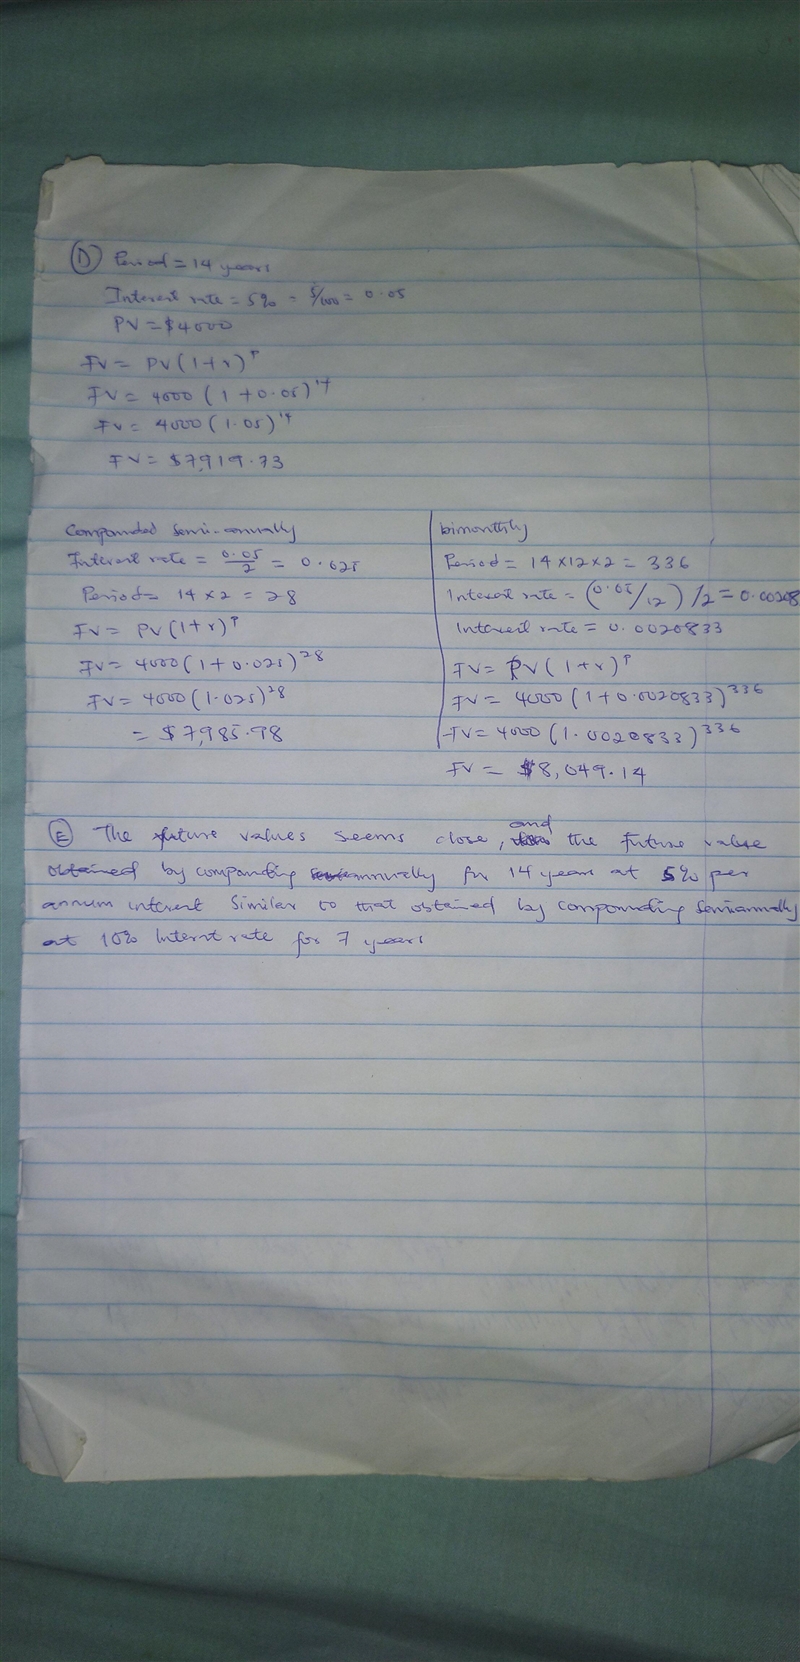 (D) Period = 14 years
Interest rate = 5% = 5/100 = 0.05
PV = $4000
FV = PV(1+r)^P
FV = 4000 (1+0.05)^14
FV = 4000 (1.05)^14
FV = $7,919.73
Compounded Semi-annually
Interest rate = 0.05/2 = 0.025
Period = 14 x 2 = 28
FV = PV(1+r)^P
FV = 4000(1+0.025)^28
FV = 4000(1.025)^28
= $7,985.98
bimonthly
Period = 14 x 12 x 2 = 336
Interest rate = (0.05/12)/2 = 0.00208
Interest rate = 0.0020833
FV = PV(1+r)^P
FV = 4000(1+0.0020833)^336
FV = 4000(1.0020833)^336
FV = $8,049.14
(E) The future values seems close, and the future value
obtained by companding annually for 14 years at 5% per
annum interest Similar to that obtained by compounding Semiannually
at 10% Interst rate for 7 years